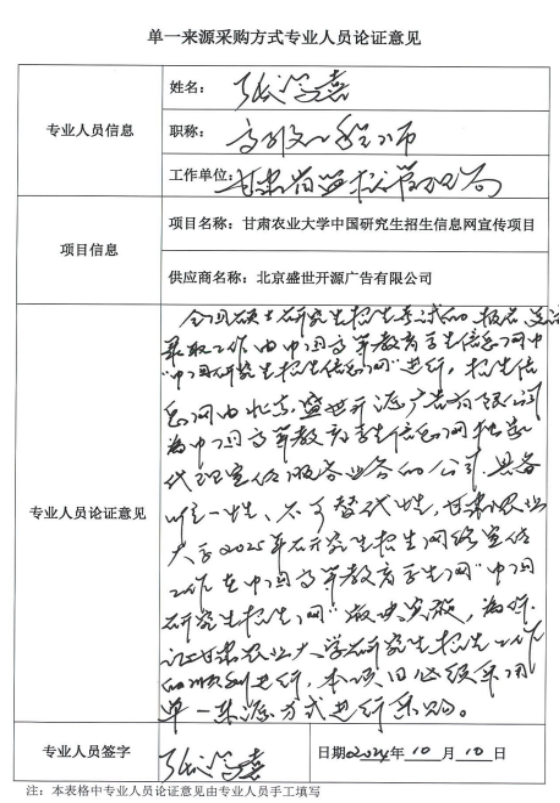 单一来源采购方式专业人员论证意见
专业人员信息
姓名：
职称：高级工程师
工作单位：甘肃省监狱管理局
项目信息
项目名称：甘肃农业大学中国研究生招生信息网宣传项目
供应商名称：北京盛世开源广告有限公司
专业人员论证意见
全国硕士研究生招生考试的报名
录取工作由中国高等教育学生信息网中
“中国研究生招生信息网”进行，招生信
息网由北京盛世开源广告有限公司
为中国高等教育学生信息网独家
代理宣传服务业务的公司，具备
唯一性、不可替代性，甘肃农业
大学2025年研究生招生网络宣传
工作在中国高等教育学生网“中国
研究生招生网”版块实施，为保
证甘肃农业大学研究生招生工作
的顺利进行，本项目必须采用
单一来源方式进行采购。
专业人员签字
日期2024年10月10日
注：本表格中专业人员论证意见由专业人员手工填写